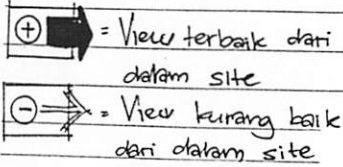 + = View terbaik dari
dalam site
- = View kurang baik
dari dalam site